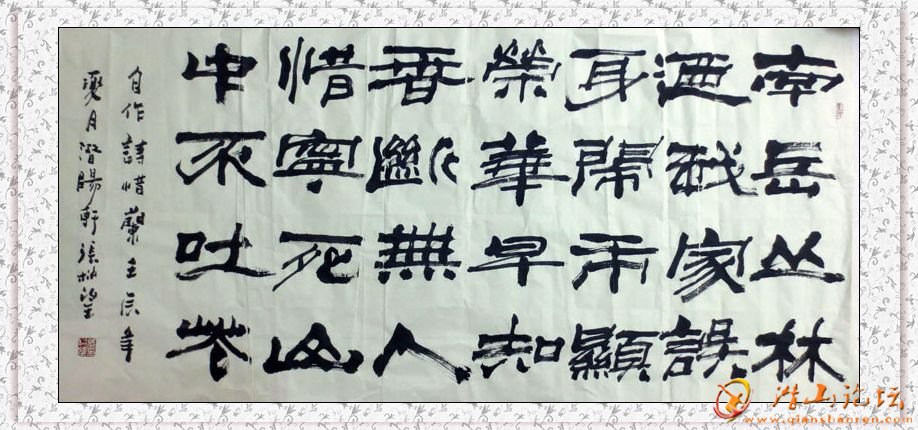 南岳丛林
迺我家誤
身鬧市顯
榮華早知
香斷無人
惜寧死山
中不吐花
自作詩惜蘭壬辰年
夏月潛陽軒張
潜山论坛
www.qianshanren.com